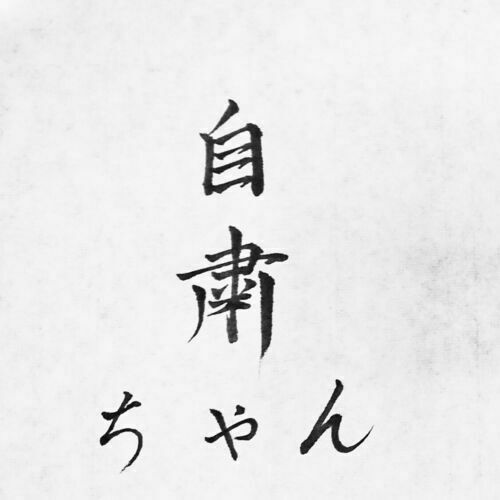 自粛
ちゃん